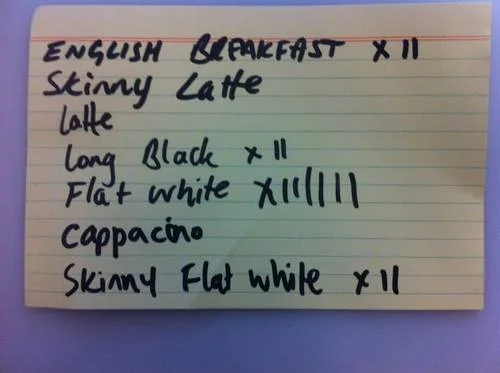 ENGLISH BREAKFAST x II
Skinny Latte
Latte
Long Black x II
Flat white x IIIIII
Cappacino
Skinny Flat white x II